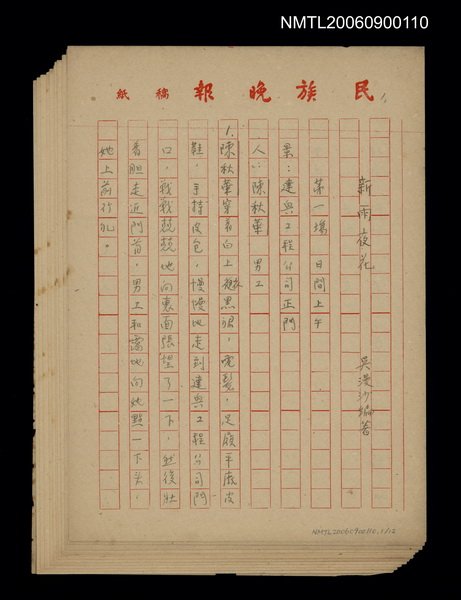 NMTL20060900110
民族晚報稿紙
1
新雨夜花 吳漫沙編著
第一場 日間上午
景:建興工程公司正門
人:陳秋華 男工
1.陳秋華穿着白上衣黑裙,電髮,足履平底皮
鞋,手持皮包,慢慢地走到建興工程公司門
口,戰戰兢兢地向裏面張望了一下,然後壯
着胆走近門前,男工和靄地向她點一下头,
她上前行礼。
NMTL20060900110,1/12